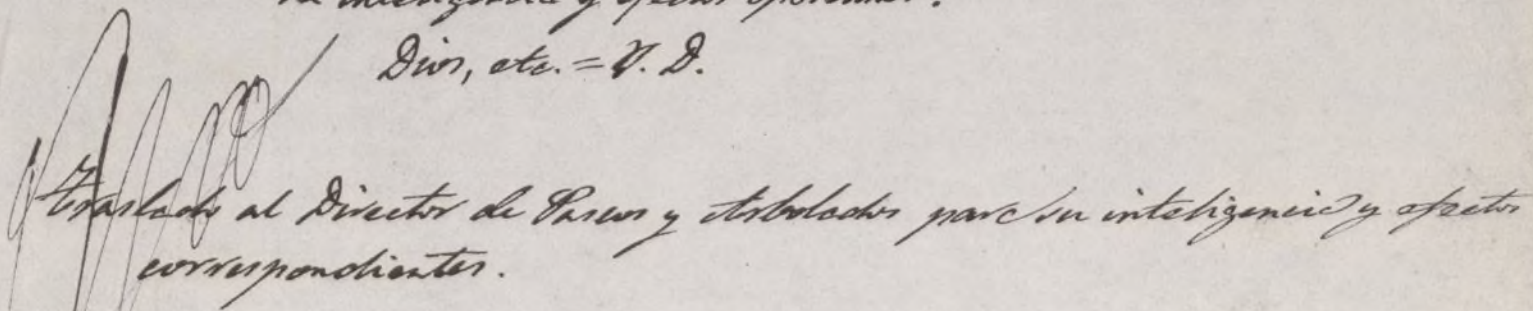 su inteligencia y efectos oportunos.
Dios, etc. = V. D.
Traslado al Director de Paseos y Arbolados para su inteligencia y efectos
correspondientes.